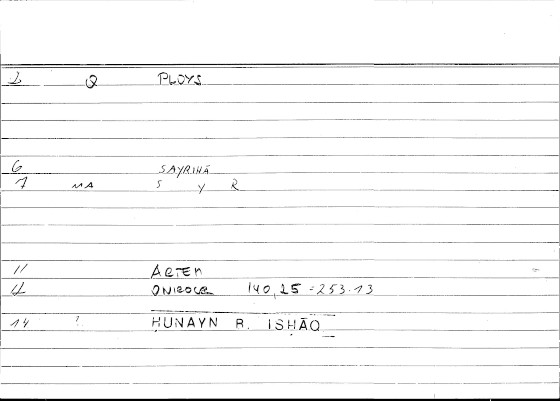 1 Q PLOYS
6 SAYRIHĀ
7 MA S Y R
11 ARTEM
12 ONIROCR 140,25 = 253.13
14 ḤUNAYN B. ISḤĀQ